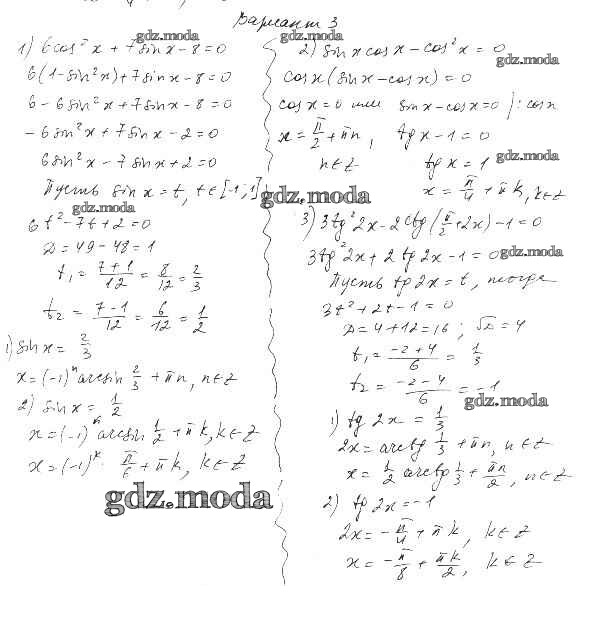 Вариант 3
1) 6cos²x + 7sinx - 8 = 0
6(1 - sin²x) + 7sinx - 8 = 0
6 - 6sin²x + 7sinx - 8 = 0
-6sin²x + 7sinx - 2 = 0
6sin²x - 7sinx + 2 = 0
Пусть sinx = t, t∈[-1;1]
6t² - 7t + 2 = 0
D = 49 - 48 = 1
t₁ = (7+1)/12 = 8/12 = 2/3
t₂ = (7-1)/12 = 6/12 = 1/2
1) sinx = 2/3
x = (-1)ⁿ arcsin 2/3 + πn, n∈Z
2) sinx = 1/2
x = (-1)ᵏ arcsin 1/2 + πk, k∈Z
x = (-1)ᵏ · π/6 + πk, k∈Z
2) sinx cosx - cos²x = 0
cosx(sinx - cosx) = 0
cosx = 0 или sinx - cosx = 0 ): cosx
x = π/2 + πn, tgx - 1 = 0
n∈Z tgx = 1
x = π/4 + πk, k∈Z
3) 3tg²2x - 2ctg(π/2 + 2x) - 1 = 0
3tg²2x + 2tg2x - 1 = 0
Пусть tg2x = t, тогда
3t² + 2t - 1 = 0
D = 4 + 12 = 16; √D = 4
t₁ = (-2+4)/6 = 1/3
t₂ = (-2-4)/6 = -1
1) tg2x = 1/3
2x = arctg 1/3 + πn, n∈Z
x = 1/2 arctg 1/3 + πn/2, n∈Z
2) tg2x = -1
2x = -π/4 + πk, k∈Z
x = -π/8 + πk/2, k∈Z
gdz.moda
gdz.moda
gdz.moda
gdz.moda
gdz.moda
gdz.moda
gdz.moda
gdz.moda
gdz.moda